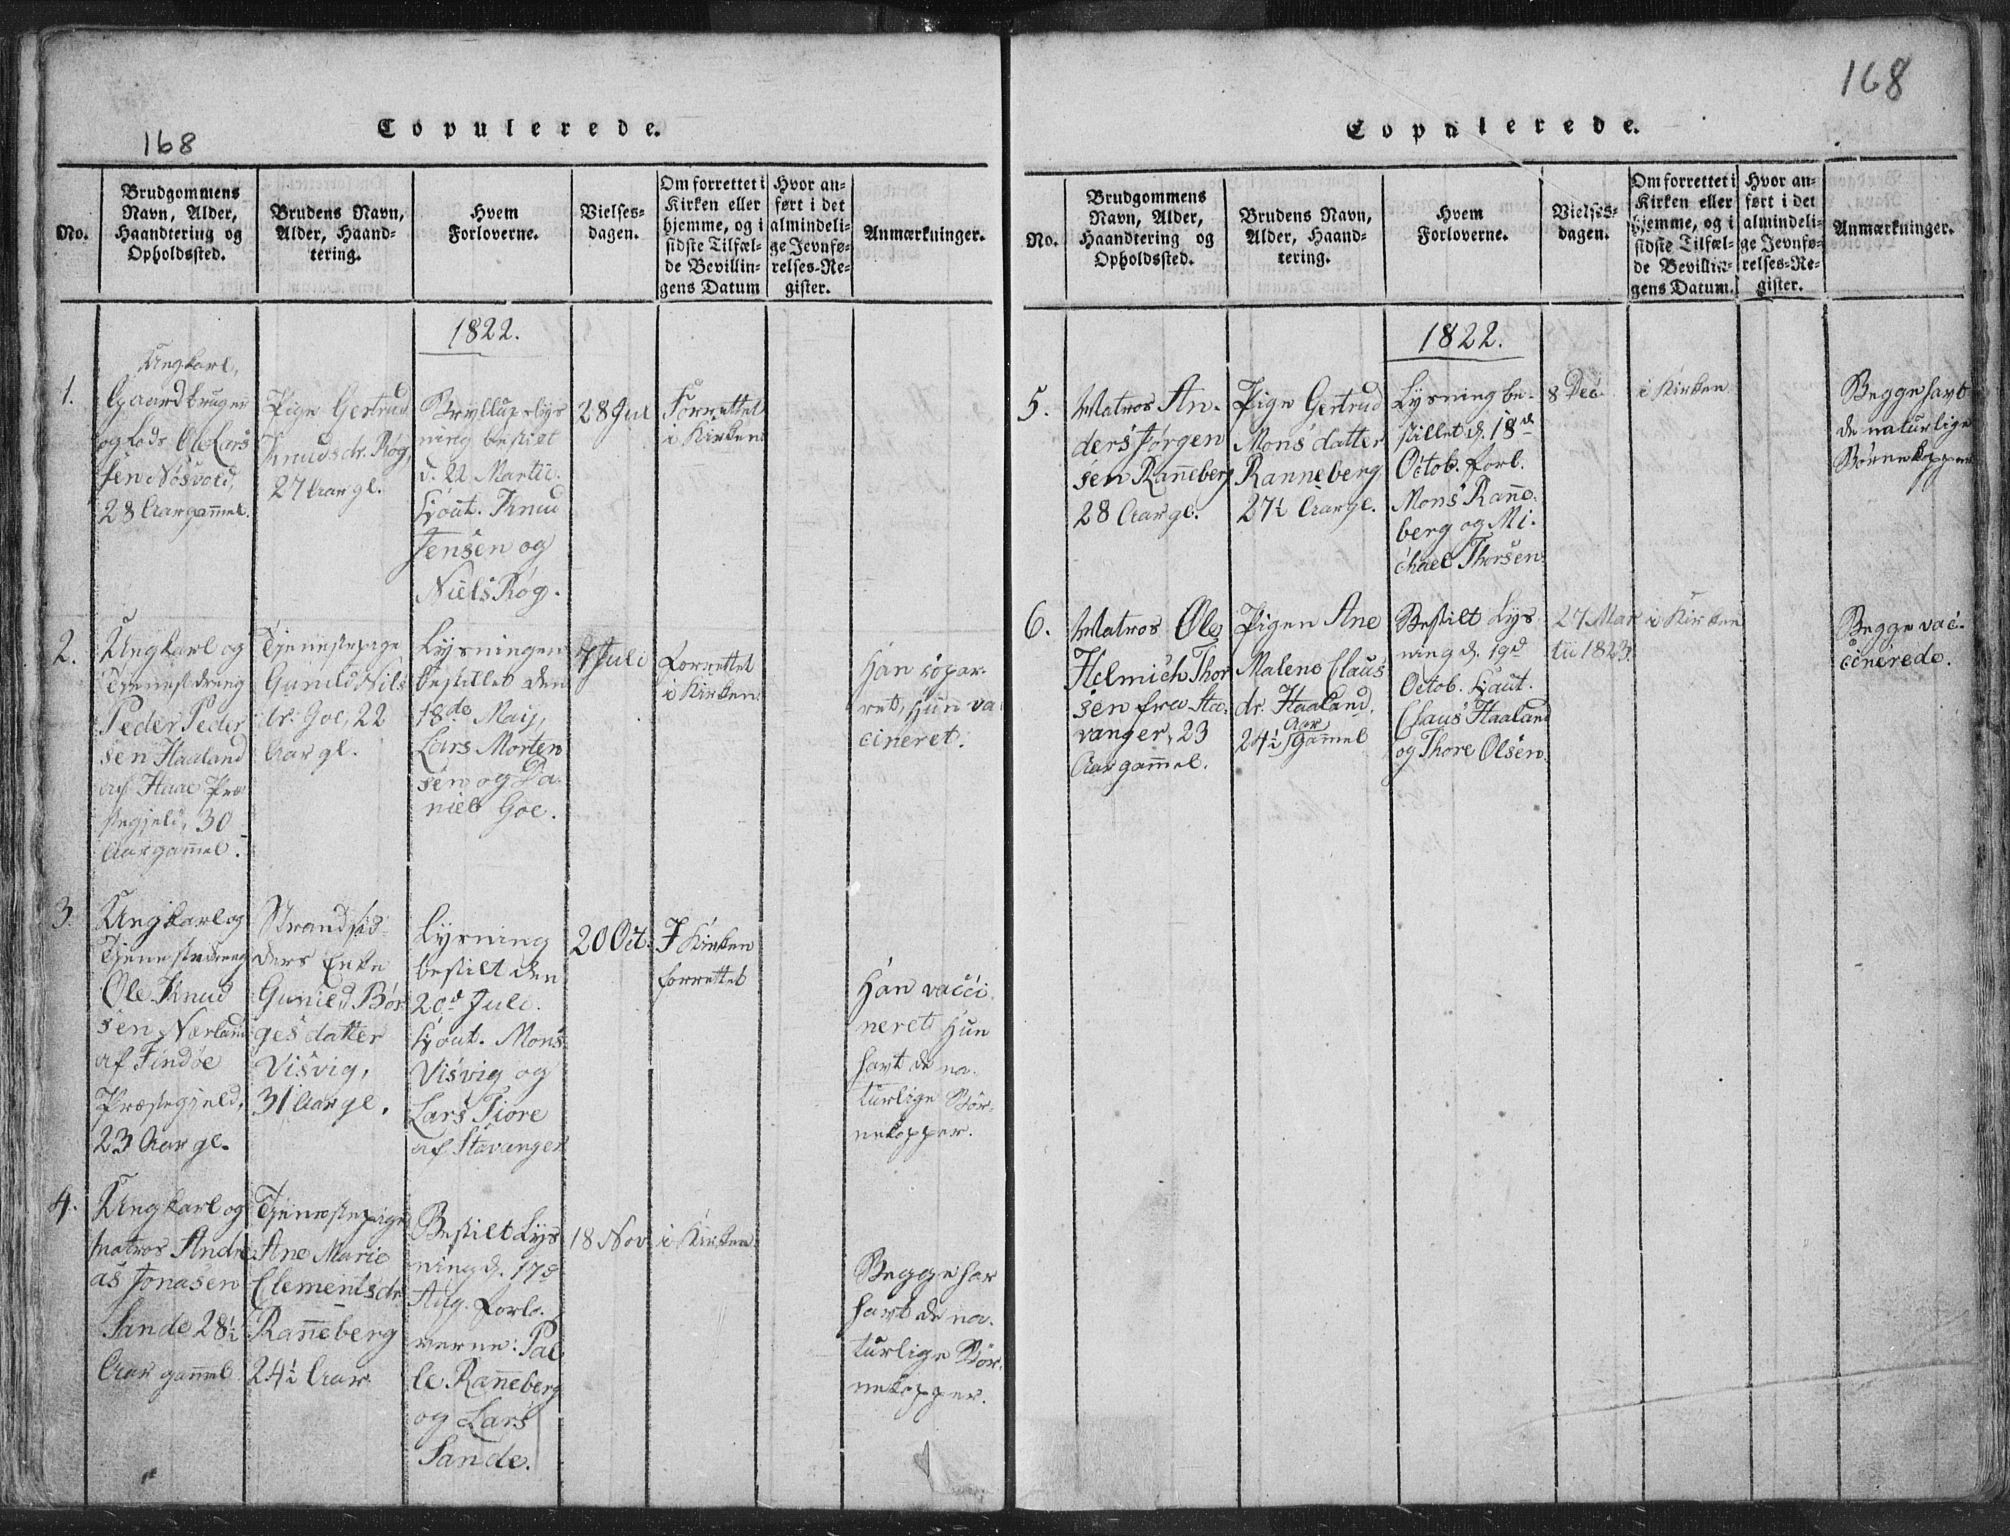 168
Copulerede.
No.
Brudgommens
Navn, Alder,
Haandtering og
Opholdssted.
Brudens Navn,
Alder, Haand-
tering.
Hvem
Forloverne.
Vielses-
dagen.
Om forrettet i
Kirken eller
hjemme, og i
sidste Tilfæl-
de Bevillin-
gens Datum
Hvor an-
ført i det
almindeli-
ge Jevnfø-
relses-Re-
gister.
Anmærkninger.
1822.
1.
Ungkarl,
Gaardbruger
og Lods Ole Lars
sen Nøsvold,
28 Aar gam̅el.
Pige Gertrud
Knudsdr. Røg,
27 Aar gl.
Bryllupslys
ning bestilt
d. 22 Martii.
Cout. Knud
Jensen og
Niels Røg.
28 Jul
Forrettet
i Kirken
2.
Ungkarl og
Tjenestdreng
Peder Peder
sen Haaland
af Haae Præ
stegjeld, 30
Aar gam̅el.
Tjenestepige
Gunild Nils
dr. Goe, 22
Aar gl.
Lysningen
bestillet den
18de Maij,
Lars Morten
sen og Da-
niel Goe.
7 Juli
Forrettet
i Kirken
Han copar-
ret, Hun va
cineret.
3.
Ungkarl og
Tjenestedreng
Ole Knud
sen Nærland
af Findøe
Præstegjeld,
23 Aar gl.
Strandsid-
ders Enke
Gunild Bør
gesdatter
Visvig,
31 Aar gl.
Lysning
bestilt den
20d Juli.
Cout. Mons
Visvig og
Lars Tiore
af Stavanger
20 Oct.
I Kirken
forrettet
Han vacci
neret Hun
havt de na-
turlige Bør-
nekopper.
4.
Ungkarl og
Matros Andre
as Jonasen
Sande 28½
Aar gam̅el
Tjenestepige
Ane Marie
Clementsdr.
Ran̅eberg
24½ Aar
Bestilt Lys
ning d. 17d
Aug. Forlo-
verne: Pal
le Ran̅eberg
og Lars
Sande.
18 Nov.
i Kirken
Begge har
havt de na-
turlige Bør-
nekopper.
168
Copulerede.
No.
Brudgommens
Navn, Alder,
Haandtering og
Opholdssted.
Brudens Navn,
Alder, Haand-
tering.
Hvem
Forloverne.
Vielses-
dagen.
Om forrettet i
Kirken eller
hjemme, og i
sidste Tilfæl-
de Bevillin-
gens Datum.
Hvor an-
ført i det
almindeli-
ge Jevnfø-
relses-Re-
gister.
Anmærkninger.
1822.
5.
Matros An-
ders Jørgen
sen Ran̅eberg
28 Aar gl.
Pige Gertrud
Monsdatter
Ranneberg
27½ Aar gl.
Lysning be-
stillet d. 18d
Octob. Forl.
Mons Ran̅e-
berg og Mi-
chael Thorsen
8 Dec.
i Kirken
Begge havt
de naturlige
Børnekopper
6.
Matros Ole
Helmich Thor
sen fra Sta-
vanger, 23
Aar gam̅el.
Pigen Ane
Malene Claus
dr. Haaland.
24½ Aar Gam̅el
Bestilt Lys
ning d. 19d
Octob. Caut.
Claus Haaland
og Thore Olsen
27 Mar
tii 1823
i Kirken
Begge vac-
cinerede.